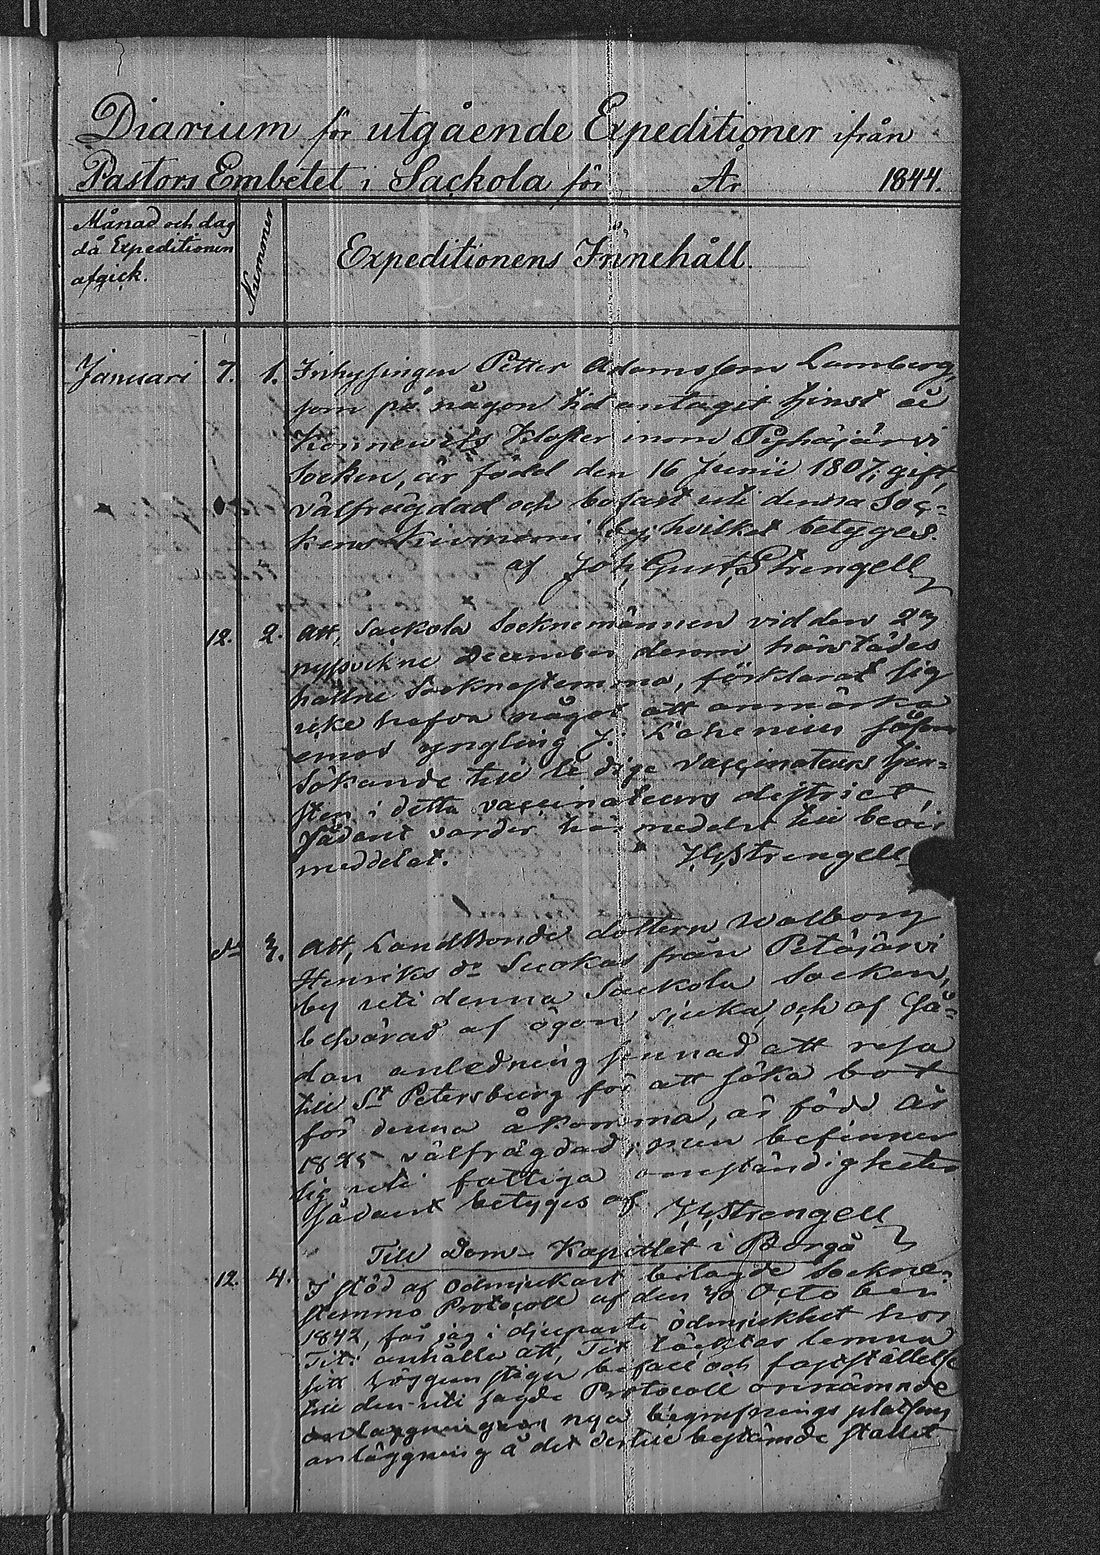 Diarium för utgående Expeditioner ifrån
Pastors Embetet i Sackola för År 1844.
Månad och dag
då Expeditionen
afgick.
Nummer
Expeditionens Innehåll.
Januari 7. 1. Inhysingen Petter Adamsson Lamberg
som på någon tid antagit tjenst å
Konnewits Kloster inom Pyhäjärvi
Socken, är född den 16 Junii 1807, gift,
välfrägdad och bofast uti denna Soc-
kens by, hvilket betyges
af Joh. Gust. Strengell
12. 2. Att, Sackola Socknemännen vid den
nyssvikne December derom härstädes
hållne Socknestemma, förklarat sig
icke hafva något att anmärka
emot yngling J. Lahenius såsom
sökande till lediga vaccinateurs tjen-
sten i detta vaccinateurs district
Sådant varder härmedelst till bevis
meddelat. J G Strengell
do 3. Att, Landbonde dottern Walborg
Henriks dr Suokas från Petäjärvi
by uti denna Sackola Socken,
besvärad af ögon sjuka, och af så-
dan anledning sinnad att resa
till St Petersburg för att söka bot
för denna åkomma, är född År
1825 välfrägdad, men befinner
sig uti fattiga omständigheter
Sådant betyges af J G Strengell
Till Dom-Kapitlet i Borgå
12. 4. I stöd af ödmjukast bilagde Sockne-
stemmo Protocoll af den 30 October
1842, får jag i djupaste ödmjukhet hos
Tit: anhålla att, Tit täcktes lemna
sitt höggunstiga bifall och fastställelse
till den uti sagde Protocoll omnämnde
nya begrafnings platsens
anläggning å det dertill bestämde stället